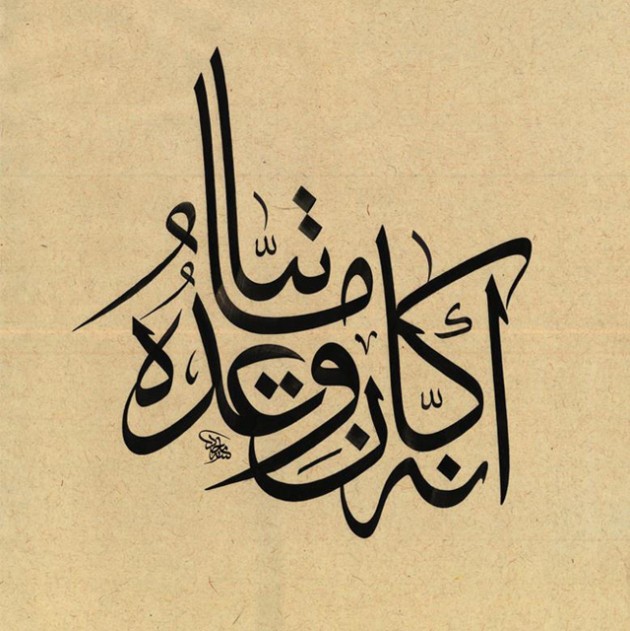 انه كان وعده ماتيّا